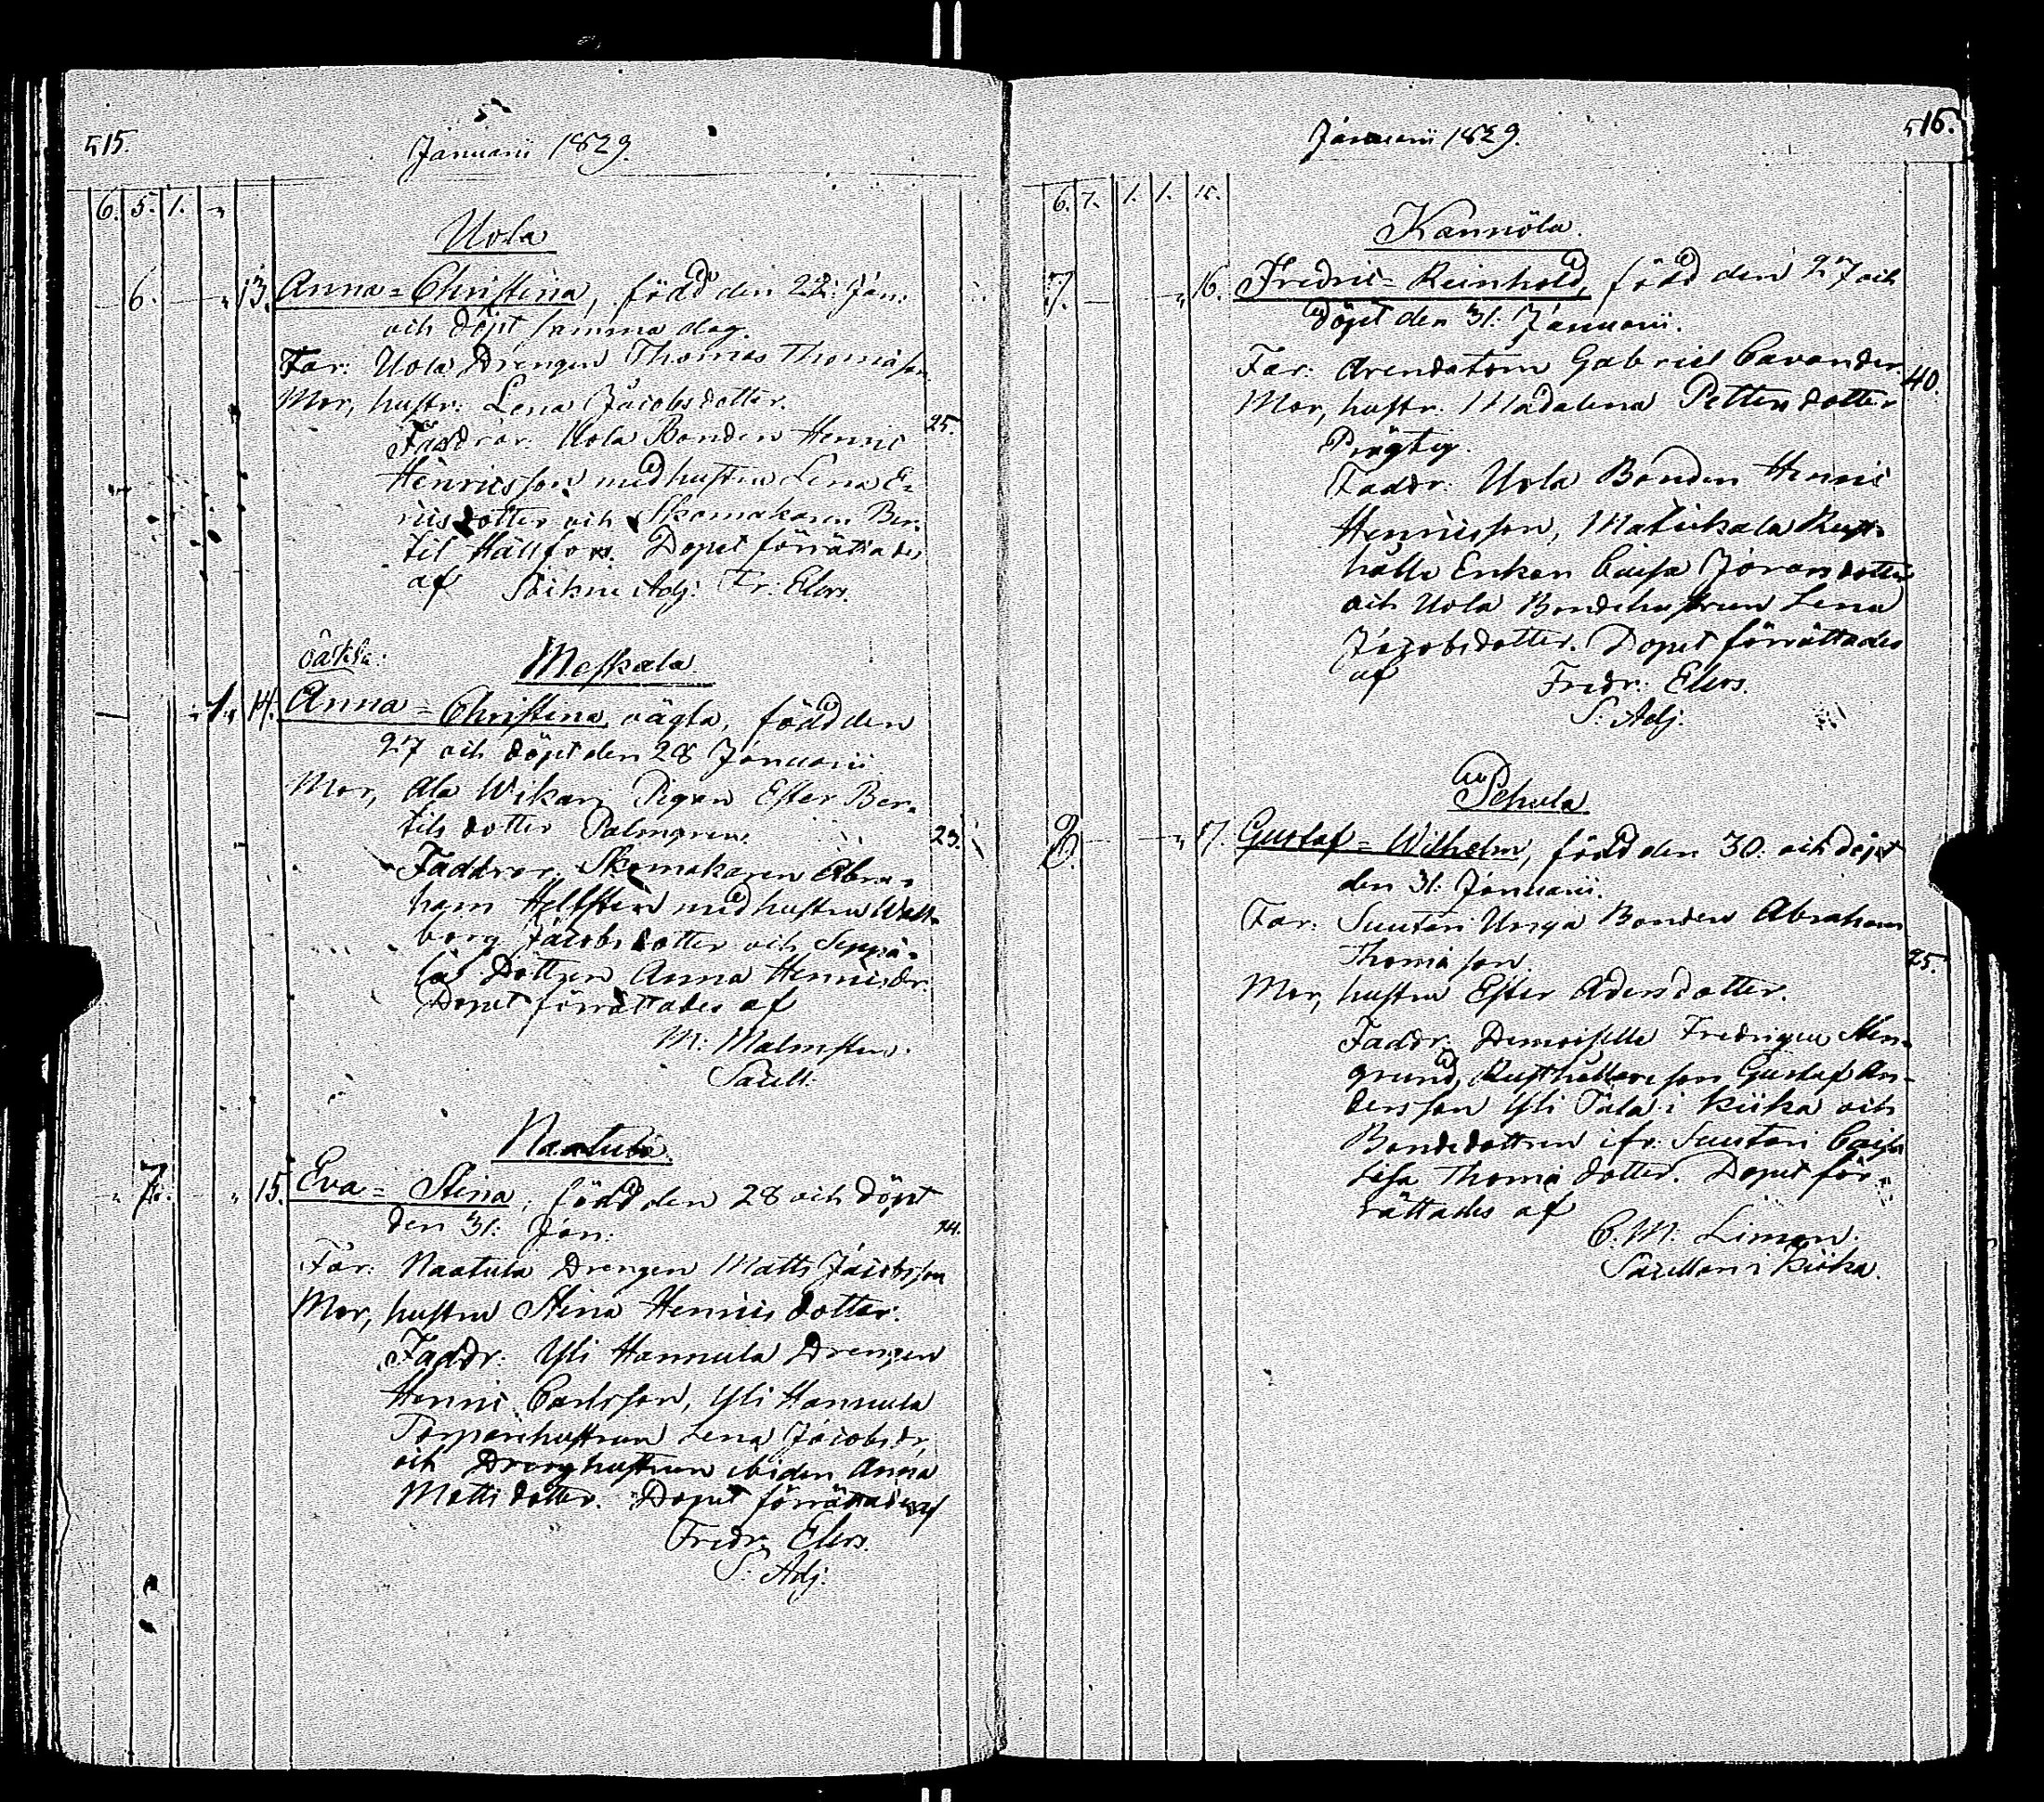 515.
Januarii 1829.
6. 5. 1. "
Uola
6. " 13. Anna=Christina, född den 22: Jan:
och döpt samma dag.
Far: Uola Drengen Thomas Thomasson
Mor, hustr: Lena Jacobsdotter. 25.
Faddrar: Uola Bonden Henric
Henricsson med hustru Lena E=
ricsdotter och Skomakaren Ber=
til Hällfors. Dopet förrättades
af Sockne Adj: Fr: Elers.
oäkta: Meskala
1. 14. Anna=Christina, oägta, född den
27 och döpt den 28 Januarii
Mor, Ala Wikari Pigan Ester Ber=
tilsdotter Palmgren. 23.
Faddrar: Skomakaren Abra=
ham Hellsten med hustru Wall=
borg Jacobsdotter och Seppä=
lä Dottren Anna Henricsdr.
Dopet förrättades af
M: Malmsten.
Sacell:
Naatula
" 7. " 15. Eva=Stina, född den 28 och döpt
den 31: Jan: 24.
Far: Naatula Drengen Matts Jacobsson
Mor, hustru Stina Henricsdotter.
Faddr: Yli Hannula Drengen
Henric Carlsson, Yli Hannula
Torparehustrun Lena Jacobsdr,
och Drenghustrun ibidem Anna
Mattsdotter. Dopet förrättades af
Fredr: Elers.
S: Adj:
516.
Januarii 1829.
6. 7. 1. 1. 15.
Kannöla.
7. " 16. Fredric=Reinhold, född den 27 och
döpt den 31: Januarii.
Far: Arendatorn Gabriel Cavander
Mor, hustr. Madalena Pettersdotter 40.
Prögtig.
Faddr: Uola Bonden Henric
Henricsson, Matickala Rust=
hålls Enkan Caisa Jöransdotter
och Uola Bondehustrun Lena
Jacobsdotter. Dopet förrättades
af Fredr: Elers.
S: Adj:
Pehula
8. " 17. Gustaf=Wilhelm, född den 30: och döpt
den 31: Januarii.
Far: Suutari Unga Bonden Abraham
Thomasson. 25.
Mor, hustru Ester Adersdotter.
Faddr: Demoiselle Fredrique Sten=
grund, Rusthållaresson Gustaf An=
dersson Yli Tala i Kiika och
Bondedottren ifr: Suutari Caisa
Lisa Thomædotter. Dopet för=
rättades af
C. M: Limon.
Sacellan i Kiika.